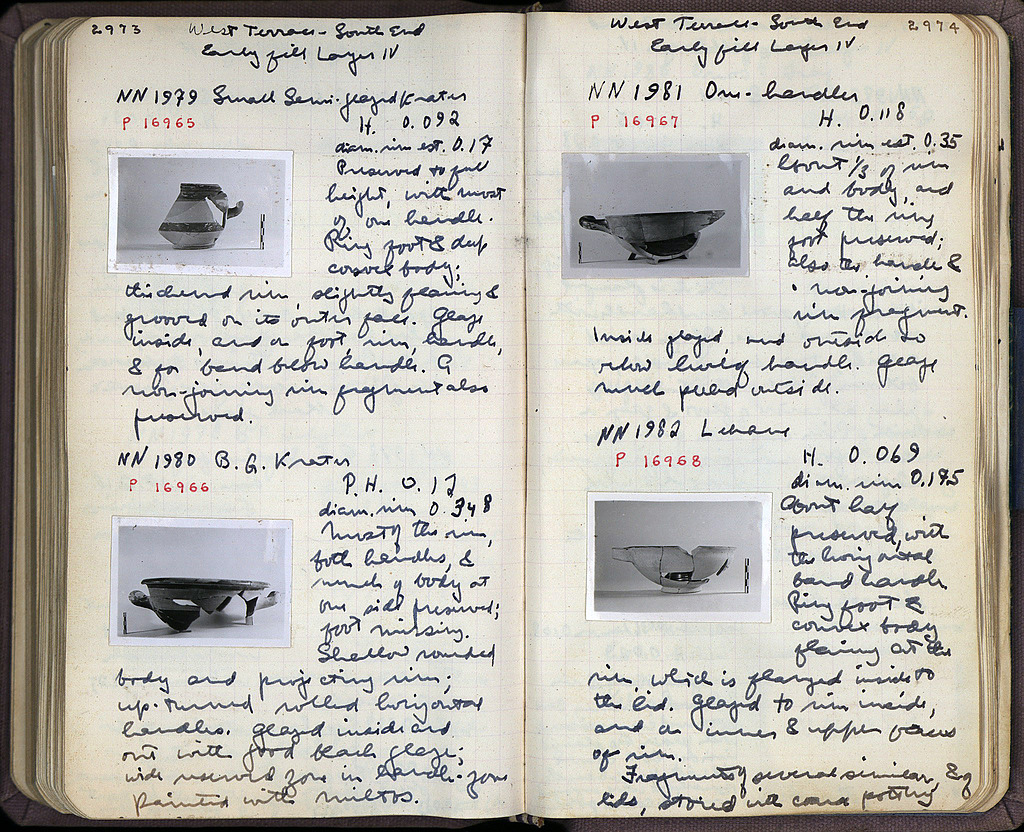 2973
West Terrace - South End
Early fill Layer IV
NN 1979 Small Semi-glazed Krater
P 16965
H. 0.092
diam. rim est. 0.17
Preserved to full
height, with most
of one handle.
Ring foot & deep
convex body;
thickened rim, slightly flaring &
grooved on its outer face. Glaze
inside, and on foot, rim, handle,
& for band below handle. A
non-joining rim fragment also
preserved.
NN 1980 B.G. Krater
P 16966
P.H. 0.12
diam. rim 0.348
Most of the rim,
both handles, &
much of body at
one side preserved;
foot missing.
Shallow rounded
body and projecting rim;
up-turned rolled horizontal
handles. Glazed inside and
out with good black glaze;
wide reserved zone in handle-zone
painted with miltos.
2974
West Terrace - South End
Early fill Layer IV
NN 1981 One-handler
P 16967
H. 0.118
diam. rim est. 0.35
About 1/3 of rim
and body, and
half the ring
foot preserved;
also the handle &
non-joining
rim fragment.
Inside glazed, and outside to
below level of handle. Glaze
much peeled outside.
NN 1982 Lekane
P 16968
H. 0.069
diam. rim 0.195
About half
preserved, with
the horizontal
band handle.
Ring foot &
convex body
flaring at the
rim, which is flanged inside to
the lid. Glazed to rim inside,
and on inner & upper faces
of rim.
Fragments of several similar, & of
lids, stored with coarse pottery